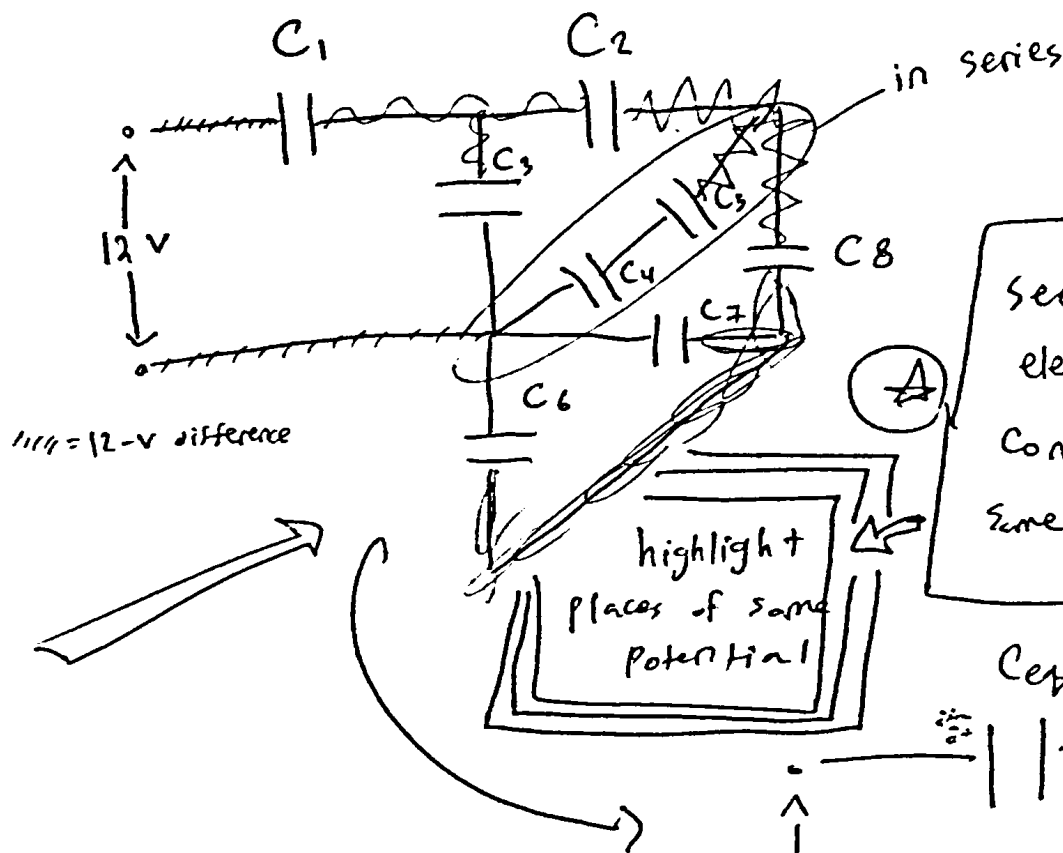 C1
C2
in series
C3
C5
12 V
C4
C8
C7
C6
//// = 12-V difference
A
ser
ele
con
same
highlight
places of same
potential
Ceq